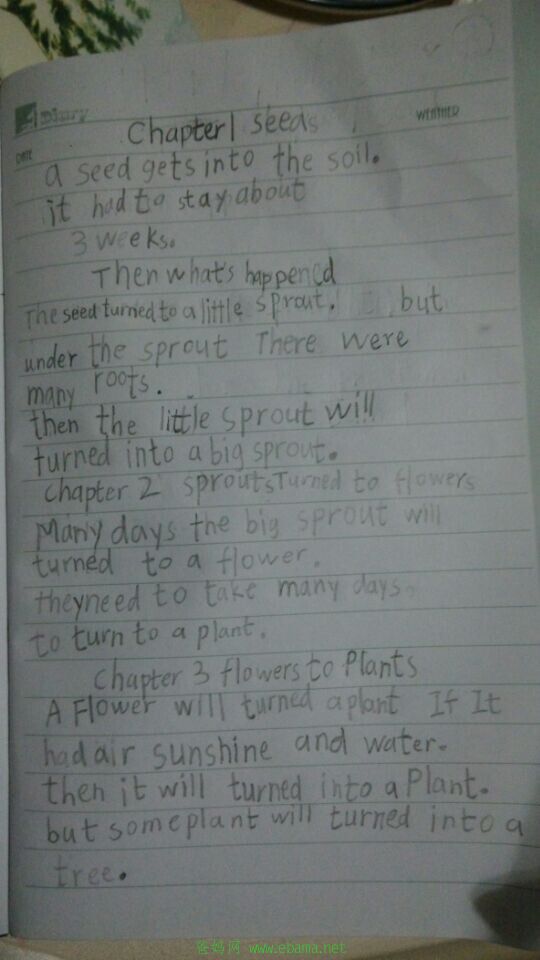 Diary
DATE
WEATHER
Chapter1 seeds
a seed gets into the soil.
it had to stay about
3 weeks.
Then what's happened
The seed turned to a little sprout. but
under the sprout There were
many roots.
then the little sprout will
turned into a big sprout.
Chapter 2 sprouts Turned to flowers
Many days the big sprout will
turned to a flower.
they need to take many days.
to turn to a plant.
Chapter 3 flowers to Plants
A Flower will turned a plant If It
had air sunshine and water.
then it will turned into a Plant.
but some plant will turned into a
tree.
爸妈网 www.ebama.net